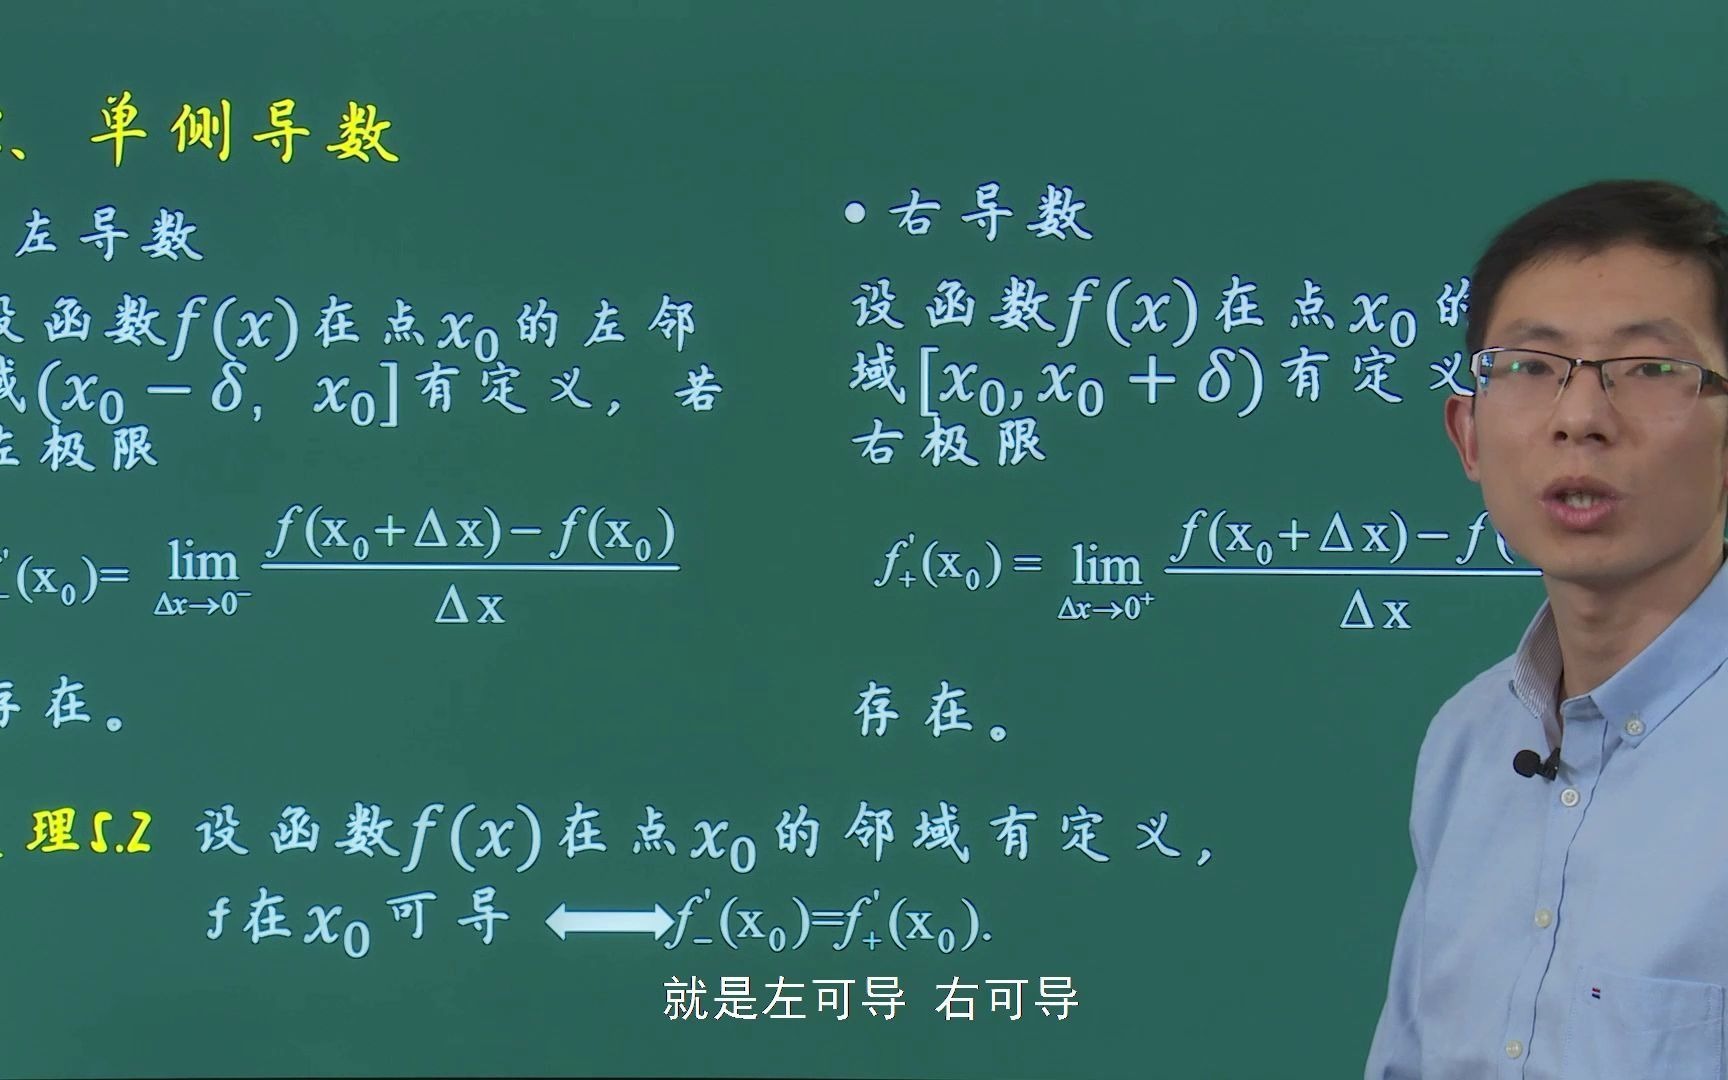 、单侧导数
左导数
设函数f(x)在点x₀的左邻
域(x₀-δ, x₀]有定义, 若
左极限
₋'(x₀)= lim_{Δx→0⁻} (f(x₀+Δx)-f(x₀))/Δx
存在。
• 右导数
设函数f(x)在点x₀的
域[x₀,x₀+δ)有定义
右极限
f₊'(x₀)= lim_{Δx→0⁺} (f(x₀+Δx)-f(/Δx
存在。
理5.2 设函数f(x)在点x₀的邻域有定义,
f在x₀可导 ⟺ f₋'(x₀)=f₊'(x₀).
就是左可导 右可导